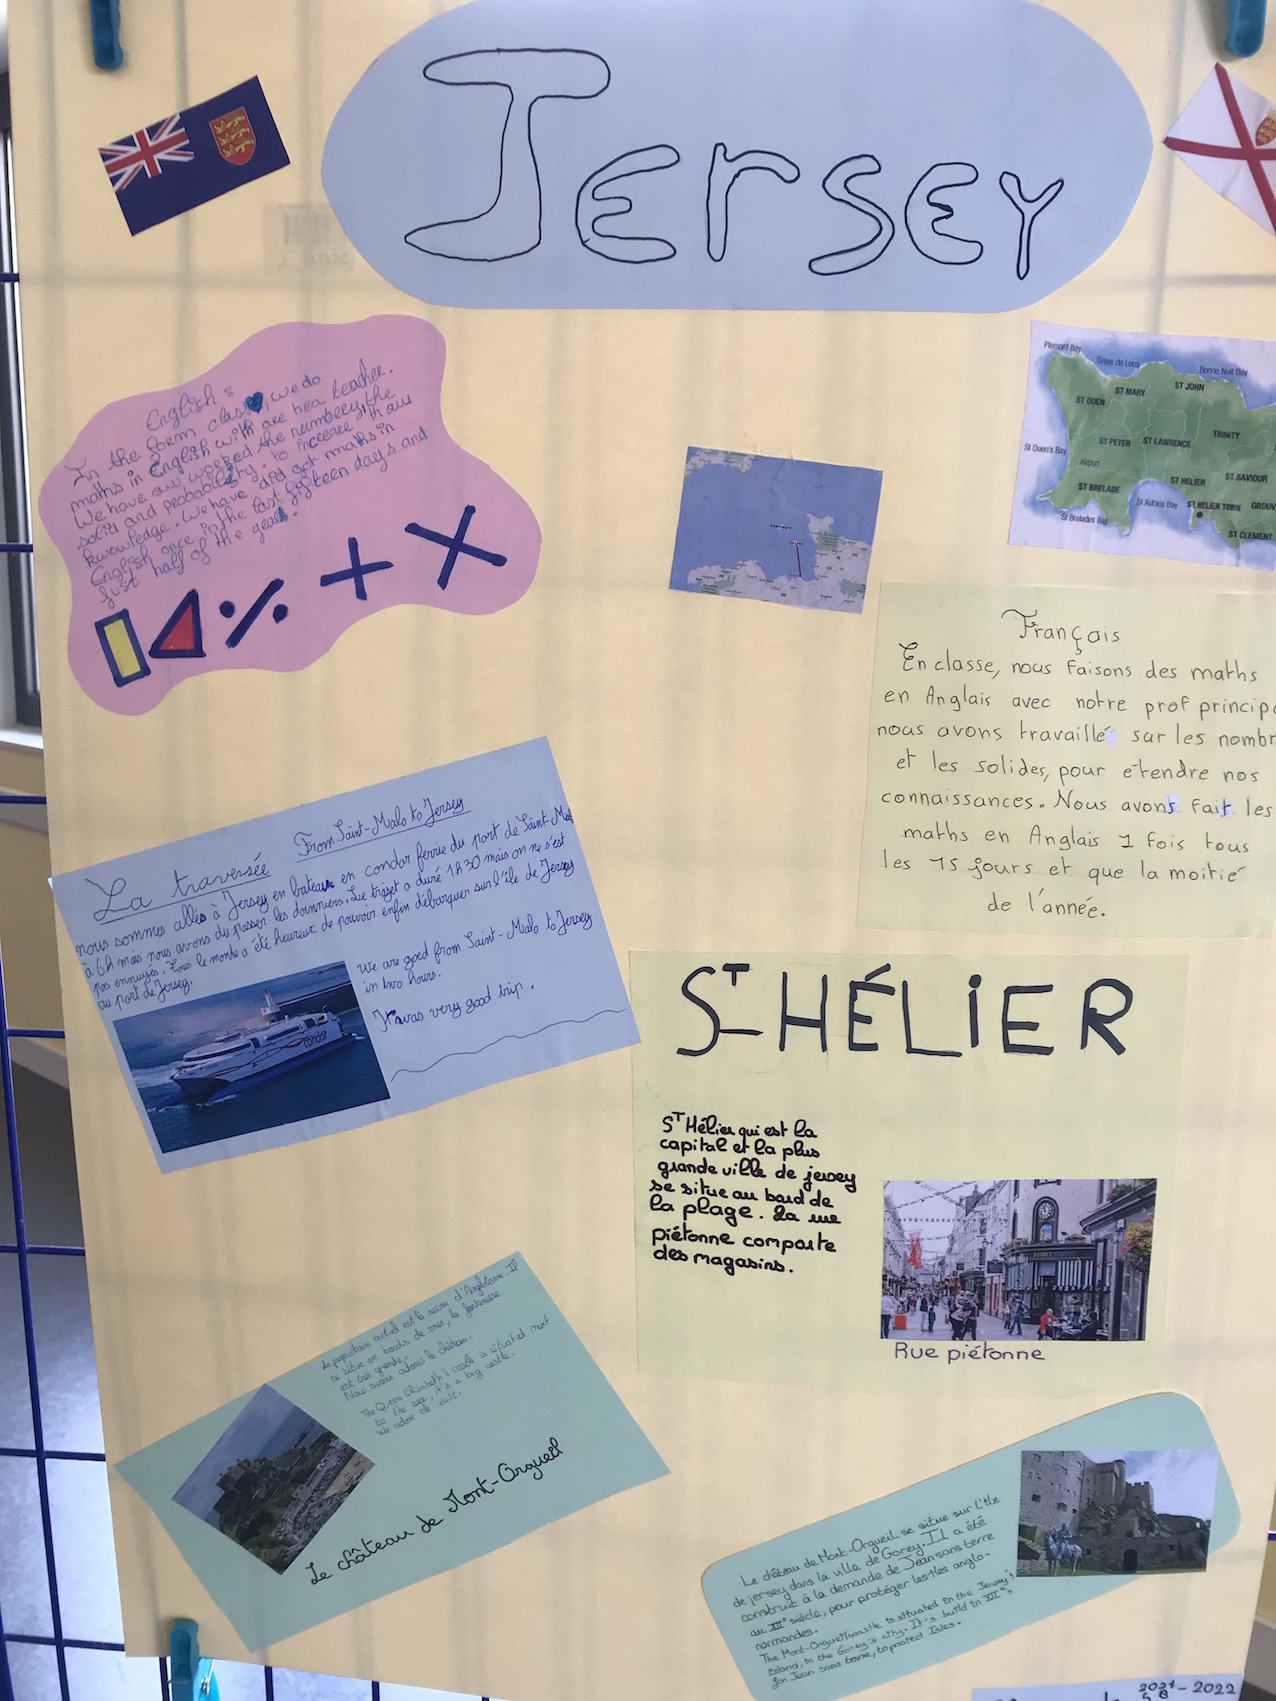 Jersey
English :
In the form class, we do
maths in English with are hea teacher.
We have our worked the numbery, the
solid and probability. to increase in our
knowledge. We have did got maths in
English once in the last fifteen days and
just half of the year.
Plemont Bay
Greve de Lecq
Bonne Nuit Bay
ST OUEN
ST MARY
ST JOHN
TRINITY
St Ouen's Bay
ST PETER
ST LAWRENCE
Airport
ST HELIER
ST SAVIOUR
ST BRELADE
St Aubins Bay
ST HELIER TOWN
GROUV
St Brelades Bay
ST CLEMENT
Français
En classe, nous faisons des maths
en Anglais avec notre prof principa
nous avons travaillé sur les nombr
et les solides, pour étendre nos
connaissances. Nous avons fait les
maths en Anglais 1 fois tous
les 15 jours et que la moitié
de l'année.
La traversée From Saint-Malo to Jersey
nous sommes allés à Jersey en bateau en condor ferrie du port de Saint Mal
à 6h mais nous avons du passer les douaniers. Le trajet a duré 1h30 mais on ne s'est
pas ennuyés. Tous le monde a été heureux de pouvoir enfin débarquer sur l'île de Jersey
au port de Jersey.
We are goed from Saint-Malo to Jersey
in two hours.
It was very good trip.
condor
ST HÉLIER
ST Hélier qui est la
capital et la plus
grande ville de jersey
se situe au bord de
la plage. La rue
piétonne comporte
des magasins.
Rue piétonne
Le propriétaire actuel est la reine d'Angleterre. Il
se situe en bords de mer, la forteresse
est très grande.
Nous avons adorés le château.
The Queen Elisabeth's castle is situated next
to the sea, it's a big castle.
We adore de visit.
Le château de Mont-Orgueil
Le château de Mont-Orgueil se situe sur l'île
de jersey dans la ville de Gorey. Il a été
construit à la demande de Jean sans terre
au XIIe siècle, pour protéger les îles anglo-
normandes.
The Mont-Orgueil castle is situated in the Jersey's
island, in the Gorey's city. It's build in XIIe's
for Jean sans terre, to protect Isles.
2021-2022